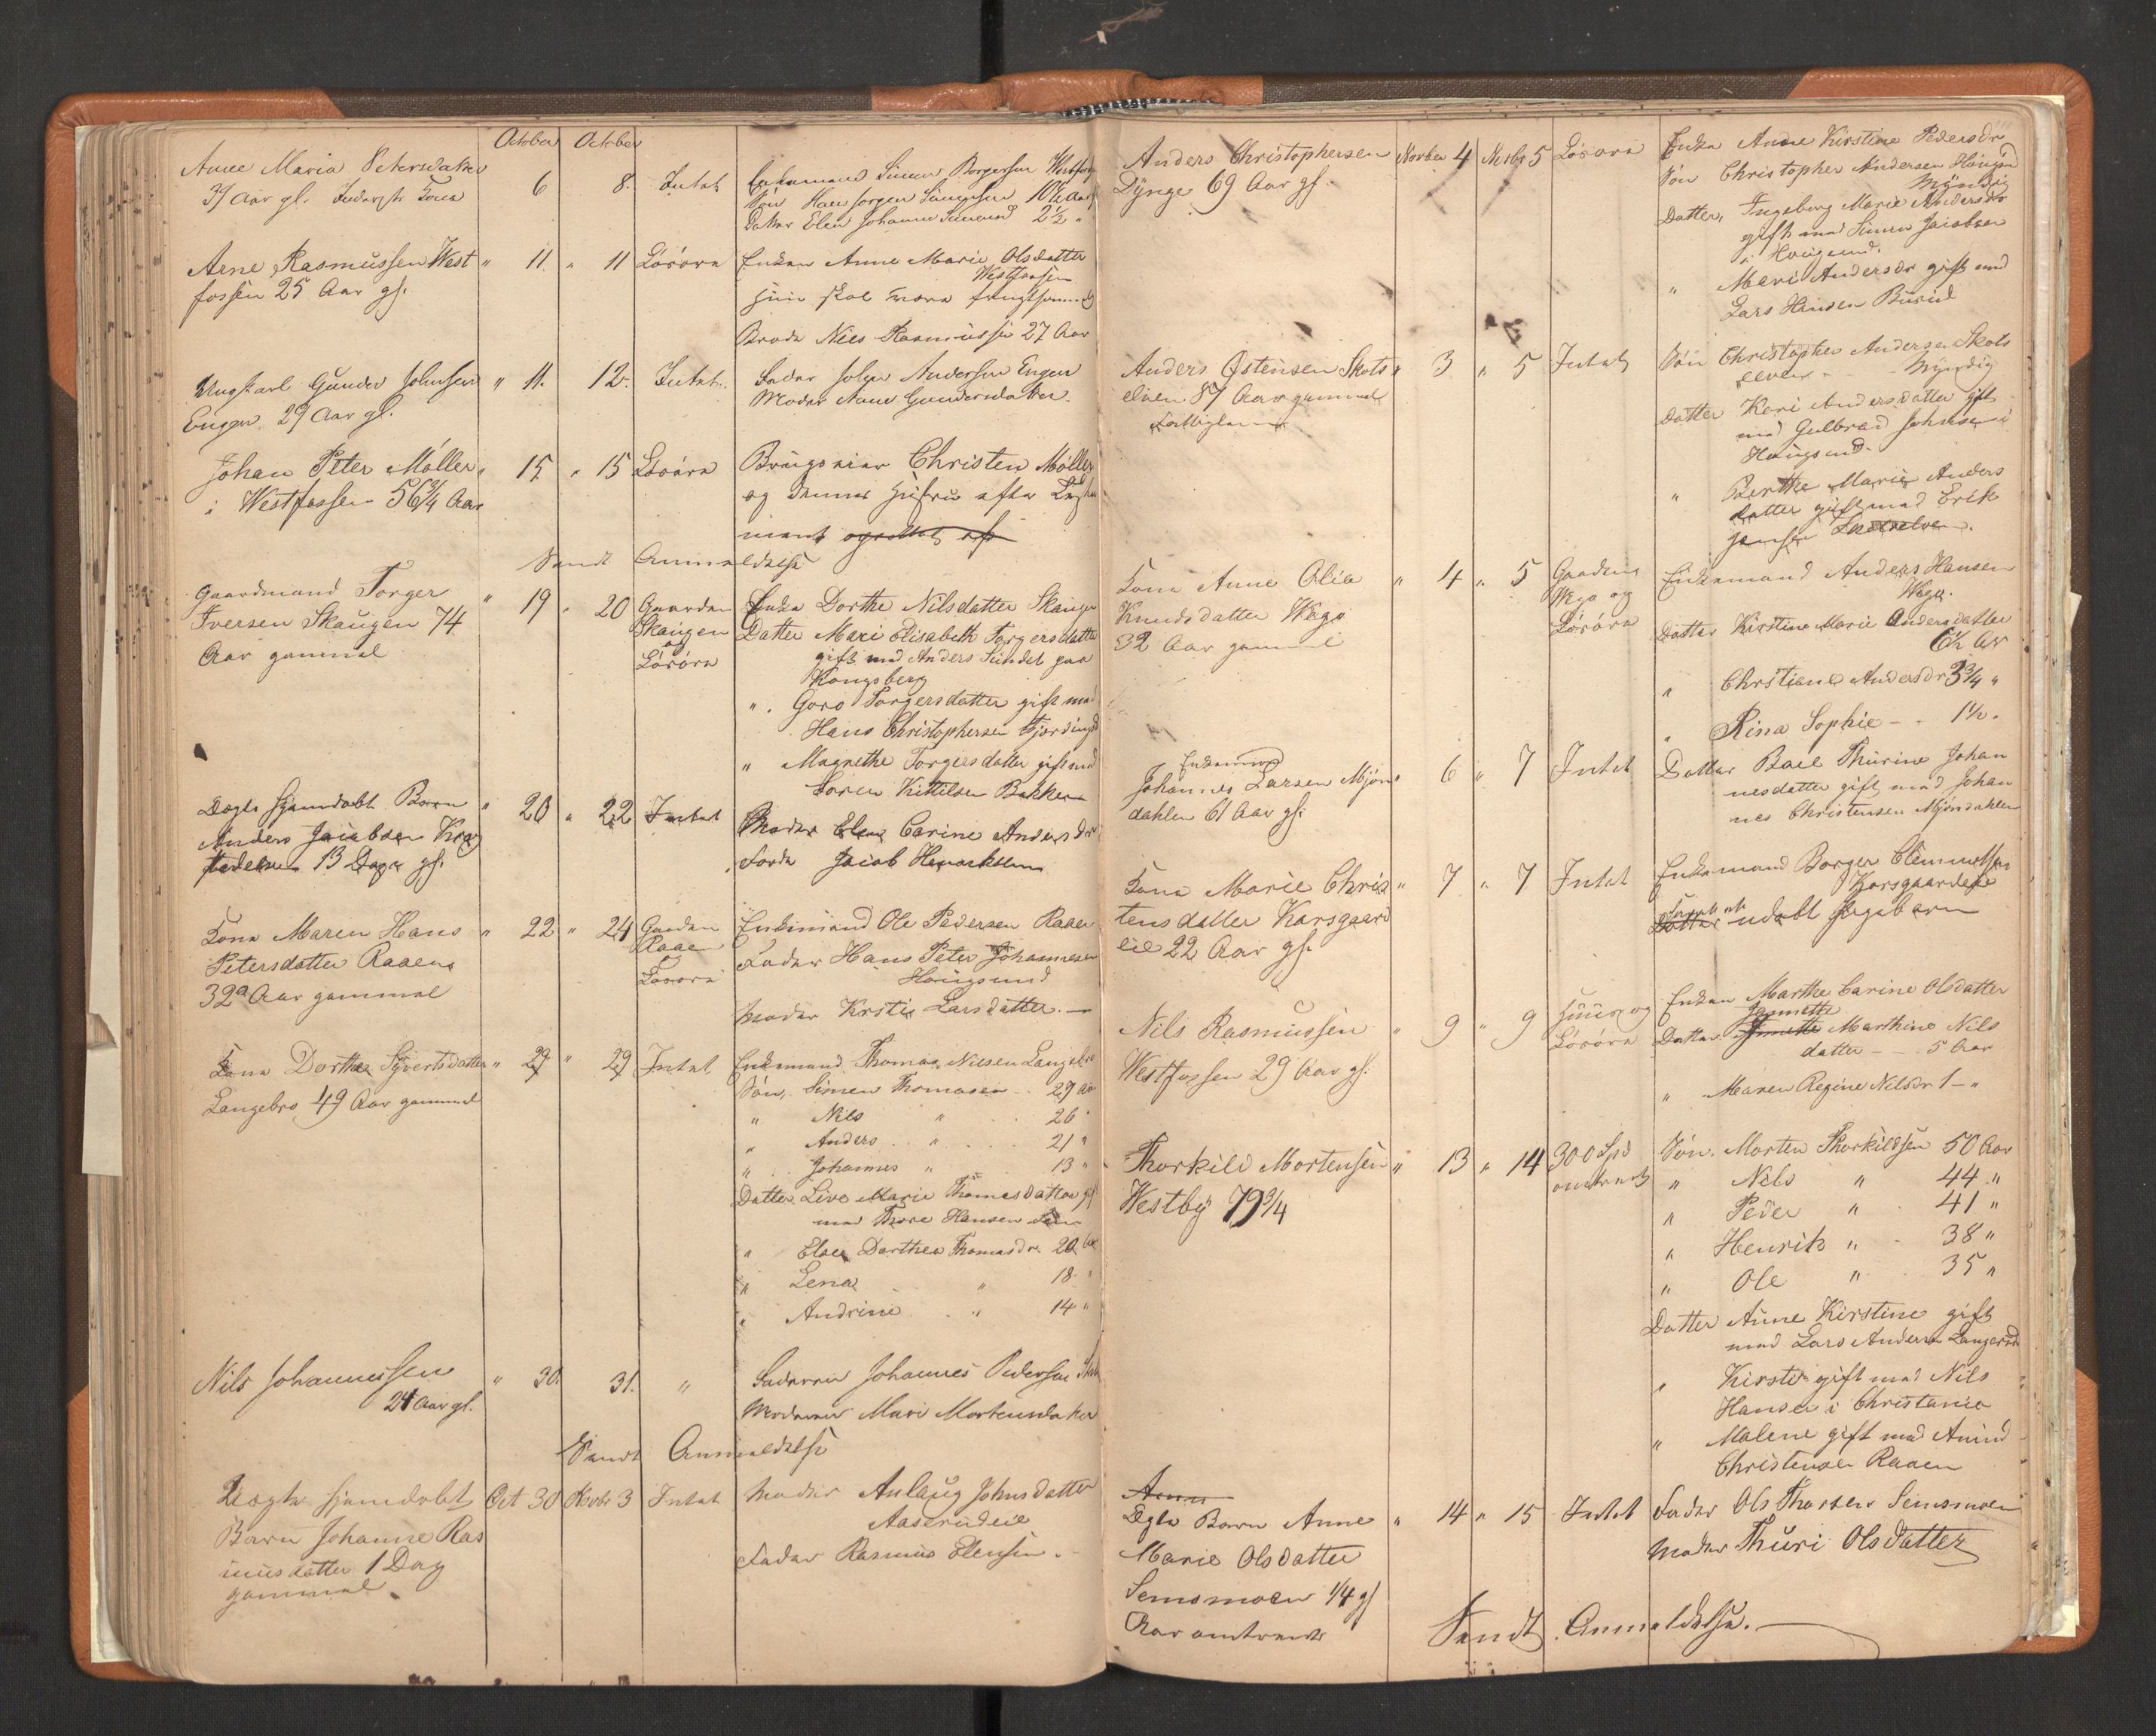 October October
Anne Maria Petersdatter 6 8. Intet Enkemand Simen Borgersen Westfos
37 Aar gl. Inderstr Kone Søn Hans Jørgen Simensen 10½ Aar
Datter Elen Johanne Simensd 2½ "
Arne Rasmussen West " 11. " 11 Løsøre Enken Anne Marie Olsdatter
fossen 25 Aar gl. Westfossen
hun skal være frugtsommelig
Broder Niels Rasmussen 27 Aar
Ungkarl Gunder Johnsen " 11. 12. Intet. Fader John Andersen Engen
Engen 29 Aar gl. Moder Anne Gundersdatter.
Johan Peter Møller " 15 " 15 Løsøre Brugseier Christen Møller
i Westfossen 56¾ Aar og dennes Hustru efter Testa
ment oprettet af
Sendt Anmeldelse
Gaardmand Torger " 19 " 20 Gaarden Enke Dorthe Nilsdatter Skaugen
Iversen Skaugen 74 Skaugen Datter Mari Elisabeth Torgersdatter
Aar gammel og gift med Anders Sundet paa
Løsøre Kongsberg
" Goro Torgersdatter gift med
Hans Christophersen Fjerdings
" Magrethe Torgersdatter gift med
Søren Kittilsen Bakken
Døgte hjemdøbt Barn " 20 " 22 Intet Moder Elen Carine Andersdr
Anders Jacobsen Krog Fader Jacob
13 Dage gl.
Kone Maren Hans " 22 " 24 Gaarden Enkemand Ole Pedersen Raaen
Petersdatter Raaen Raaen Fader Hans Peter Johannesen
32 Aar gammel og Hougsund
Løsøre Moder Kirsti Larsdatter. —
Kone Dorthe Syvertsdatter " 27 " 29 Intet Enkemand Thomas Nilsen Langebro
Langebro 49 Aar gammel Søn, Simen Thomasen 29 Aar
" Nils " 26 "
" Anders " 21 "
" Johannes " 13 "
Datter Live Marie Thomasdatter gift
med Thore Hansen
" Elen Dorthea Thomasdr. 20 Aar
" Lena " 18 "
" Andrine " 14 "
Nils Johannessen " 30. 31. " Faderen Johannes Pedersen
24 Aar gl. Moderen Mari Mortensdatter
Sendt Anmeldelse
Uægte hjemdøbt Oct 30 Novbr 3 Intet Moder Aslaug Johnsdatter
Barn Johanne Ras Aaserudeie
musdatter 1 Dag Fader Rasmus Olensen. -
gammel
Anders Christophersen Novber 4 Novbr 5 Løsøre Enke Anne Kirstine Pedersdr
Dynge 69 Aar gl. Søn Christopher Andersen Hougsund
Myndig
Datter, Ingeborg Marie Andersdr
gift med Simen Jacobsen
i Hougsund.
" Mari Andersdr gift med
Lars Hansen Burud
Anders Østensen Skots " 3 " 5 Intet Søn Christopher Andersen Skots
elven 87 Aar gammel elven - Myndig
Fattiglem Datter Kari Andersdatter gift
med Gulbrand Johnsen i
Hougsund.
" Berthe Marie Anders
datter gift med Erik
Jensen Skotselven.
Kone Anne Olia " 4 " 5 Gaarden Enkemand Anders Hansen
Knudsdatter Wego Wego og Wego.
32 Aar gammel Løsøre Datter Kirstine Marie Andersdatter
6½ Aar
" Christiane Andersdr 3¾ "
" Rina Sophie - - 1½.
Enkemand
Johannes Larsen Mjøn " 6 " 7 Intet Datter Boel Thurine Johan
dahlen 61 Aar gl. nesdatter gift med Johan
nes Christensen Mjøndahlen
Kone Marie Chris " 7 " 7 Intet Enkemand Borger Clemmetsen
tensdatter Korsgaard Korsgaardeie
eie 22 Aar gl. Datter udøbt Pigebarn
Nils Rasmussen " 9 " 9 Huus og Enken Marthe Carine Olsdatter
Westfossen 29 Aar gl. Løsøre Datter Jannette Marthine Nils
datter - - 5 Aar
" Maren Regine Nilsdr 1 - "
Thorkild Mortensen " 13 " 14 300 Spd Søn. Morten Thorkildsen 50 Aar
Westby 79¾ omtrent " Nils " 44 "
" Peder " 41 "
" Henrik " 38 "
" Ole " 35 "
Datter Anne Kirstine gift
med Lars Andersen Langerud
" Kirsti gift med Nils
Hansen i Christania
" Malene gift med Amund
Christensen Raaen
Anne
Ægte Barn Anne " 14 " 15 Intet Fader Ole Thorsen Semsmoen
Marie Olsdatter Moder Thuri Olsdatter
Semsmoen ¼ gl
Aar omtrent Sendt Anmeldelse.